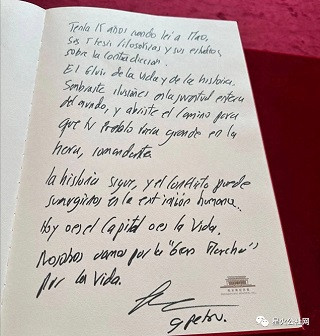 Tenía 15 años cuando leí a Mao,
Sus Tesis filosóficas y sus estudios
sobre la contradicción.
El fluir de la vida y de la historia.
Sembraste ilusiones en la juventud entera
del mundo, y abriste el camino para
que tu pueblo fuera grande en la
hora, comandante.
La historia sigue, y el conflicto puede
sumergirnos en la extinción humana..
Hoy o es el Capital o es la Vida.
Nosotros vamos por la "Gran Marcha"
por la Vida.
G Petro.